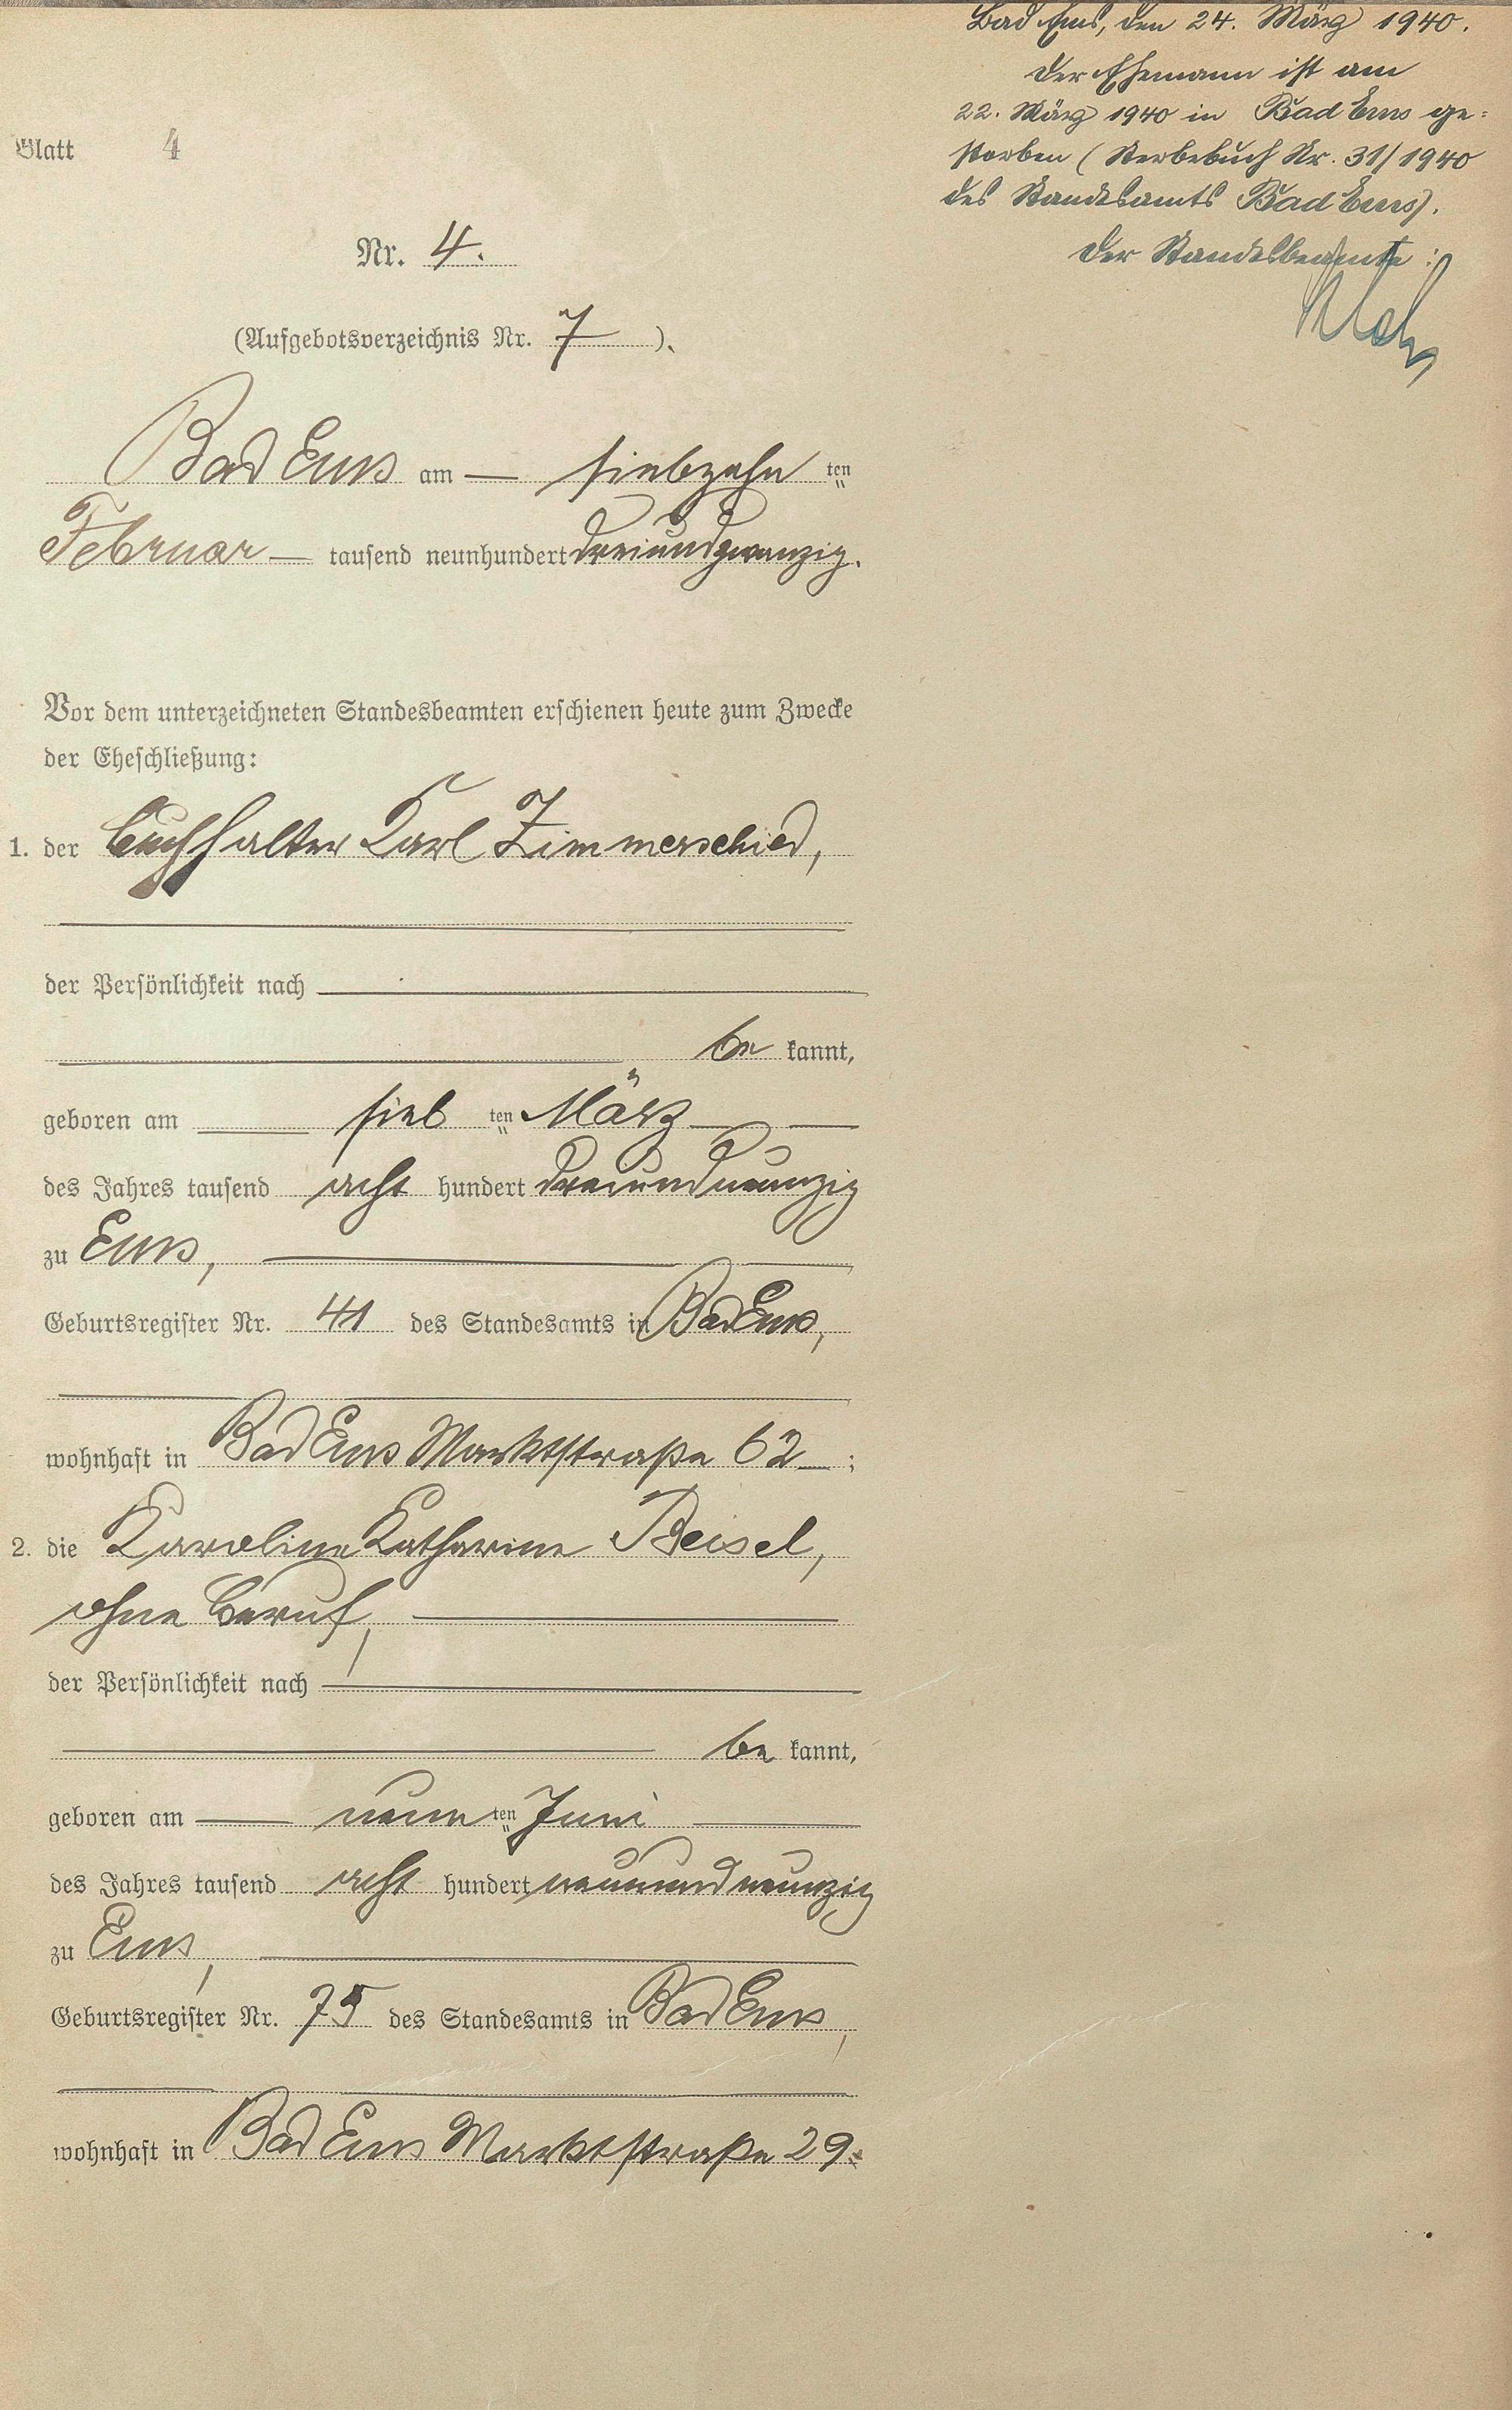 Blatt 4
Nr. 4.
(Aufgebotsverzeichnis Nr. 7).
Bad Ems am — siebzehn ten
Februar — tausend neunhundert dreiundzwanzig.
Vor dem unterzeichneten Standesbeamten erschienen heute zum Zwecke
der Eheschließung:
1. der Buchhalter Karl Zimmerschied,
der Persönlichkeit nach
be kannt,
geboren am sieb ten März
des Jahres tausend acht hundert dreiundneunzig
zu Ems,
Geburtsregister Nr. 41 des Standesamts in Bad Ems,
wohnhaft in Bad Ems Marktstraße 62 ;
2. die Karoline Katharine Beisel,
ohne Beruf,
der Persönlichkeit nach
be kannt,
geboren am neun ten Juni
des Jahres tausend acht hundert neunundneunzig
zu Ems,
Geburtsregister Nr. 75 des Standesamts in Bad Ems,
wohnhaft in Bad Ems Marktstraße 29.
Bad Ems, den 24. März 1940.
Der Ehemann ist am
22. März 1940 in Bad Ems ge-
storben (Sterbebuch Nr. 31/1940
des Standesamts Bad Ems).
Der Standesbeamte: